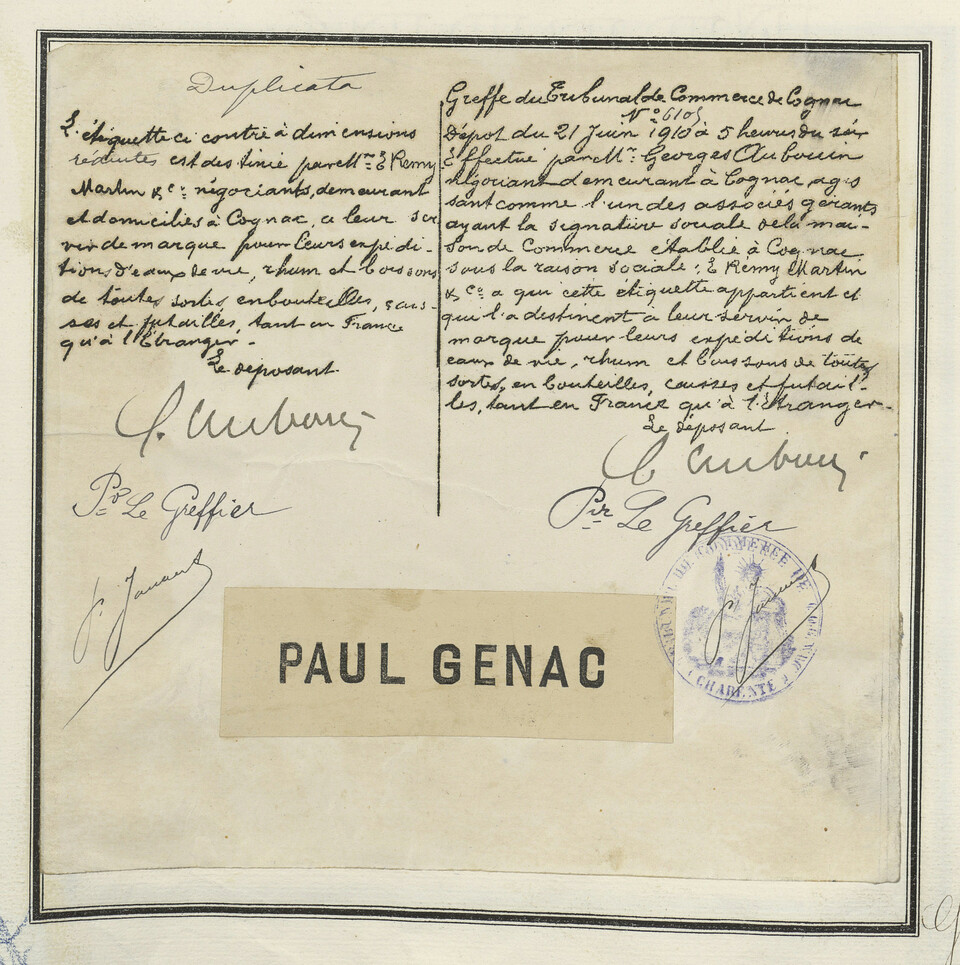 Duplicata
L'étiquette ci contre à dimensions
réduites est destinée par Mrs E. Remy
Martin & Cie négociants, demeurant
et domiciliés à Cognac, a leur ser
vir de marque pour leurs expédi-
tions d'eaux de vie, rhum et boissons
de toutes sortes en bouteilles, cais-
ses et futailles, tant en France
qu'à l'Etranger.-
Le déposant.
G. Aubouin
Pr Le Greffier
Greffe du Tribunal de Commerce de Cognac
No 6105
Dépôt du 21 Juin 1910 à 5 heures du soir
Effectué par Mr. Georges Aubouin
négociant demeurant à Cognac, agis
sant comme l'un des associés gérants
ayant la signature sociale de la mai-
son de Commerce établie à Cognac
sous la raison sociale: E. Remy Martin
& Co a qui cette étiquette appartient et
qui l'a destinent à leur servir de
marque pour leurs expéditions de
eaux de vie, rhum et boissons de toutes
sortes, en bouteilles, caisses et futail-
les, tant en France qu'à l'étranger.-
Le déposant
G. Aubouin
Pr Le Greffier
TRIBUNAL DE COMMERCE DE COGNAC
(CHARENTE)
PAUL GENAC